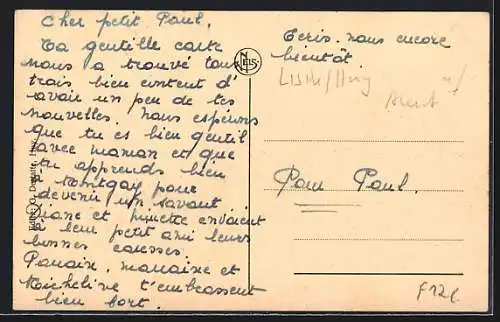 Cher petit Paul,
Ta gentille carte
nous a trouvé tous
trais bien content d'
avoir un peu de tes
nouvelles. Nous espérons
que tu es bien gentil
avec maman et que
tu apprends bien
à pour
devenir un savant
Diane et envoient
à leur petit ami leurs
bonnes caresses.
Parrain, marraine et
t'embrassent
bien fort.
Ecris-nous encore
bientôt.
NELS
Pour Paul.